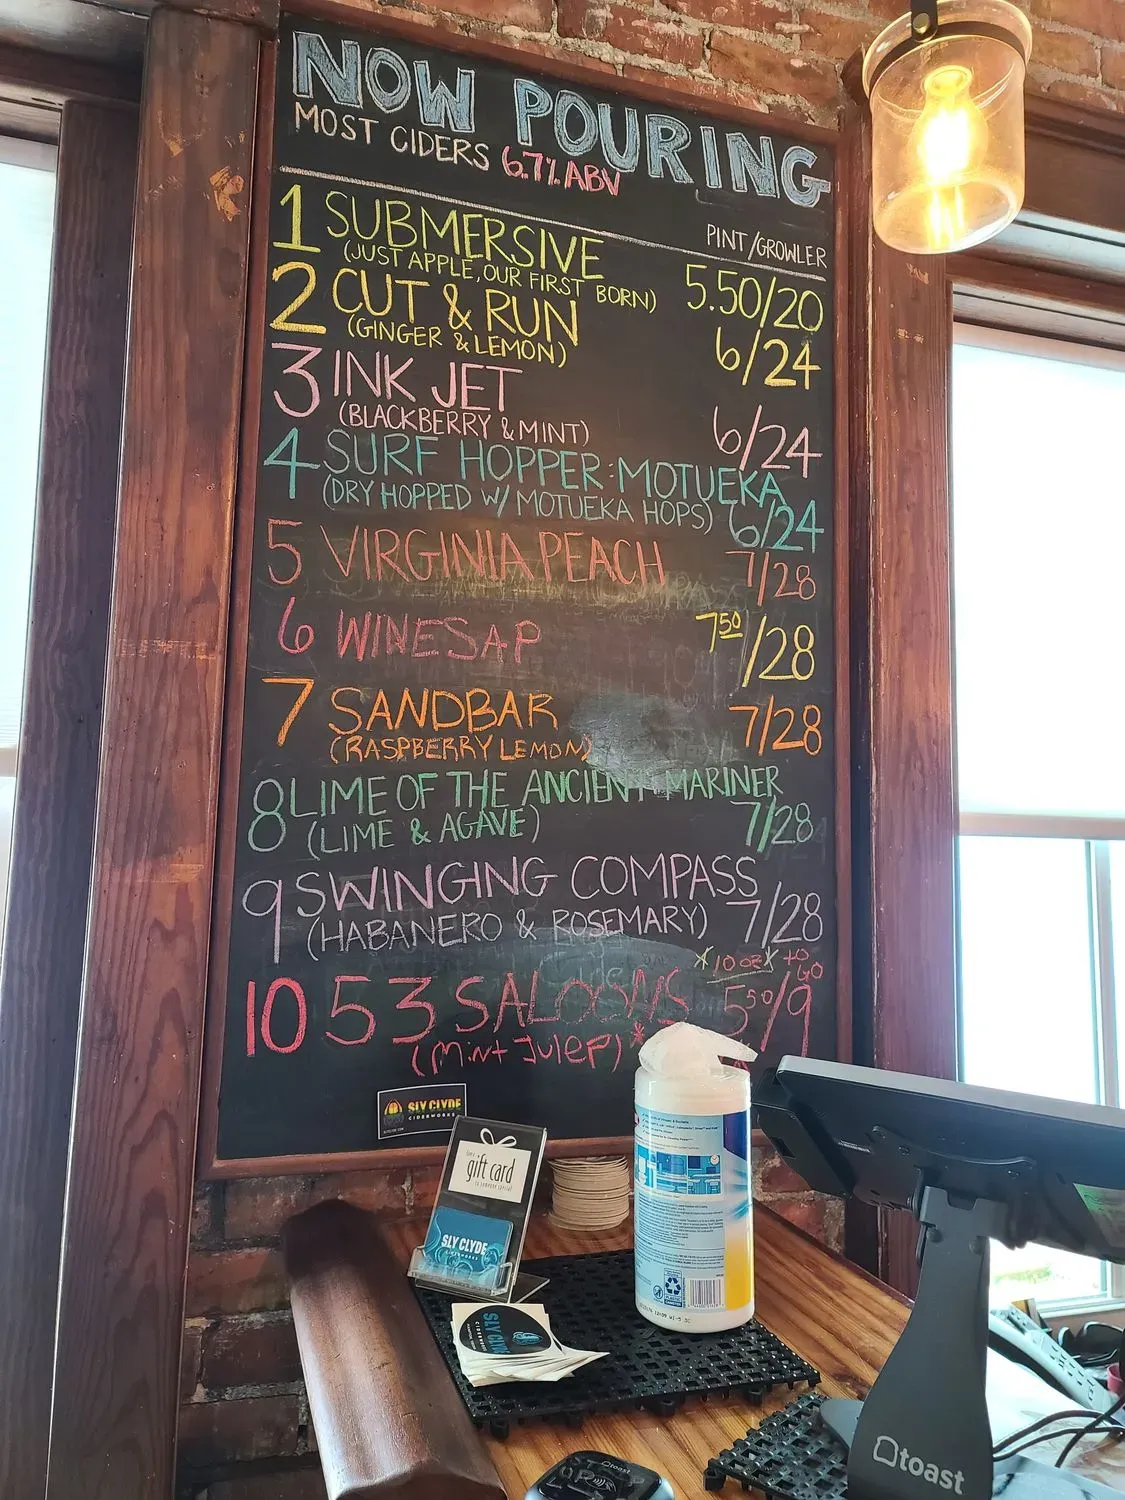 NOW POURING
MOST CIDERS 6.7% ABV
PINT/GROWLER
1 SUBMERSIVE 5.50/20
(JUST APPLE, OUR FIRST BORN)
2 CUT & RUN 6/24
(GINGER & LEMON)
3 INK JET 6/24
(BLACKBERRY & MINT)
4 SURF HOPPER: MOTUEKA
(DRY HOPPED W/ MOTUEKA HOPS) 6/24
5 VIRGINIA PEACH 7/28
6 WINESAP 7 50/28
7 SANDBAR 7/28
(RASPBERRY LEMON)
8 LIME OF THE ANCIENT MARINER
(LIME & AGAVE) 7/28
9 SWINGING COMPASS
(HABANERO & ROSEMARY) 7/28
*10 oz* to GO
10 53 SALOONS 5 50/9
(Mint Julep)*
SLY CLYDE
CIDERWORKS
gift card
to someone special
SLY CLYDE
CIDERWORKS
SLY CLYDE
CIDERWORKS
toast
toast